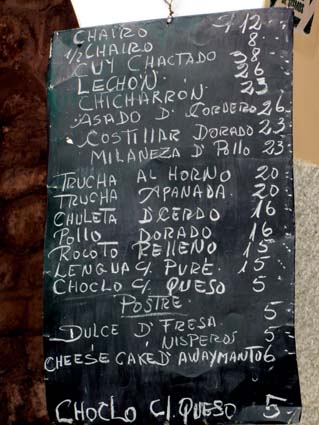 CHAIRO $12
1/2 CHAIRO 8
CUY CHACTADO 38
LECHON 26
CHICHARRON 23
ASADO D' CORDERO 26
COSTILLAR DORADO 23
MILANEZA D' POLLO 23
TRUCHA AL HORNO 20
TRUCHA APANADA 20
CHULETA D'CERDO 16
POLLO DORADO 16
ROCOTO RELLENO 15
LENGUA C/. PURE 15
CHOCLO C/. QUESO 5
POSTRE
DULCE D' FRESA 5
NISPEROS 5
CHEESE CAKE D' AWAYMANTO 6
CHOCLO C/. QUESO 5